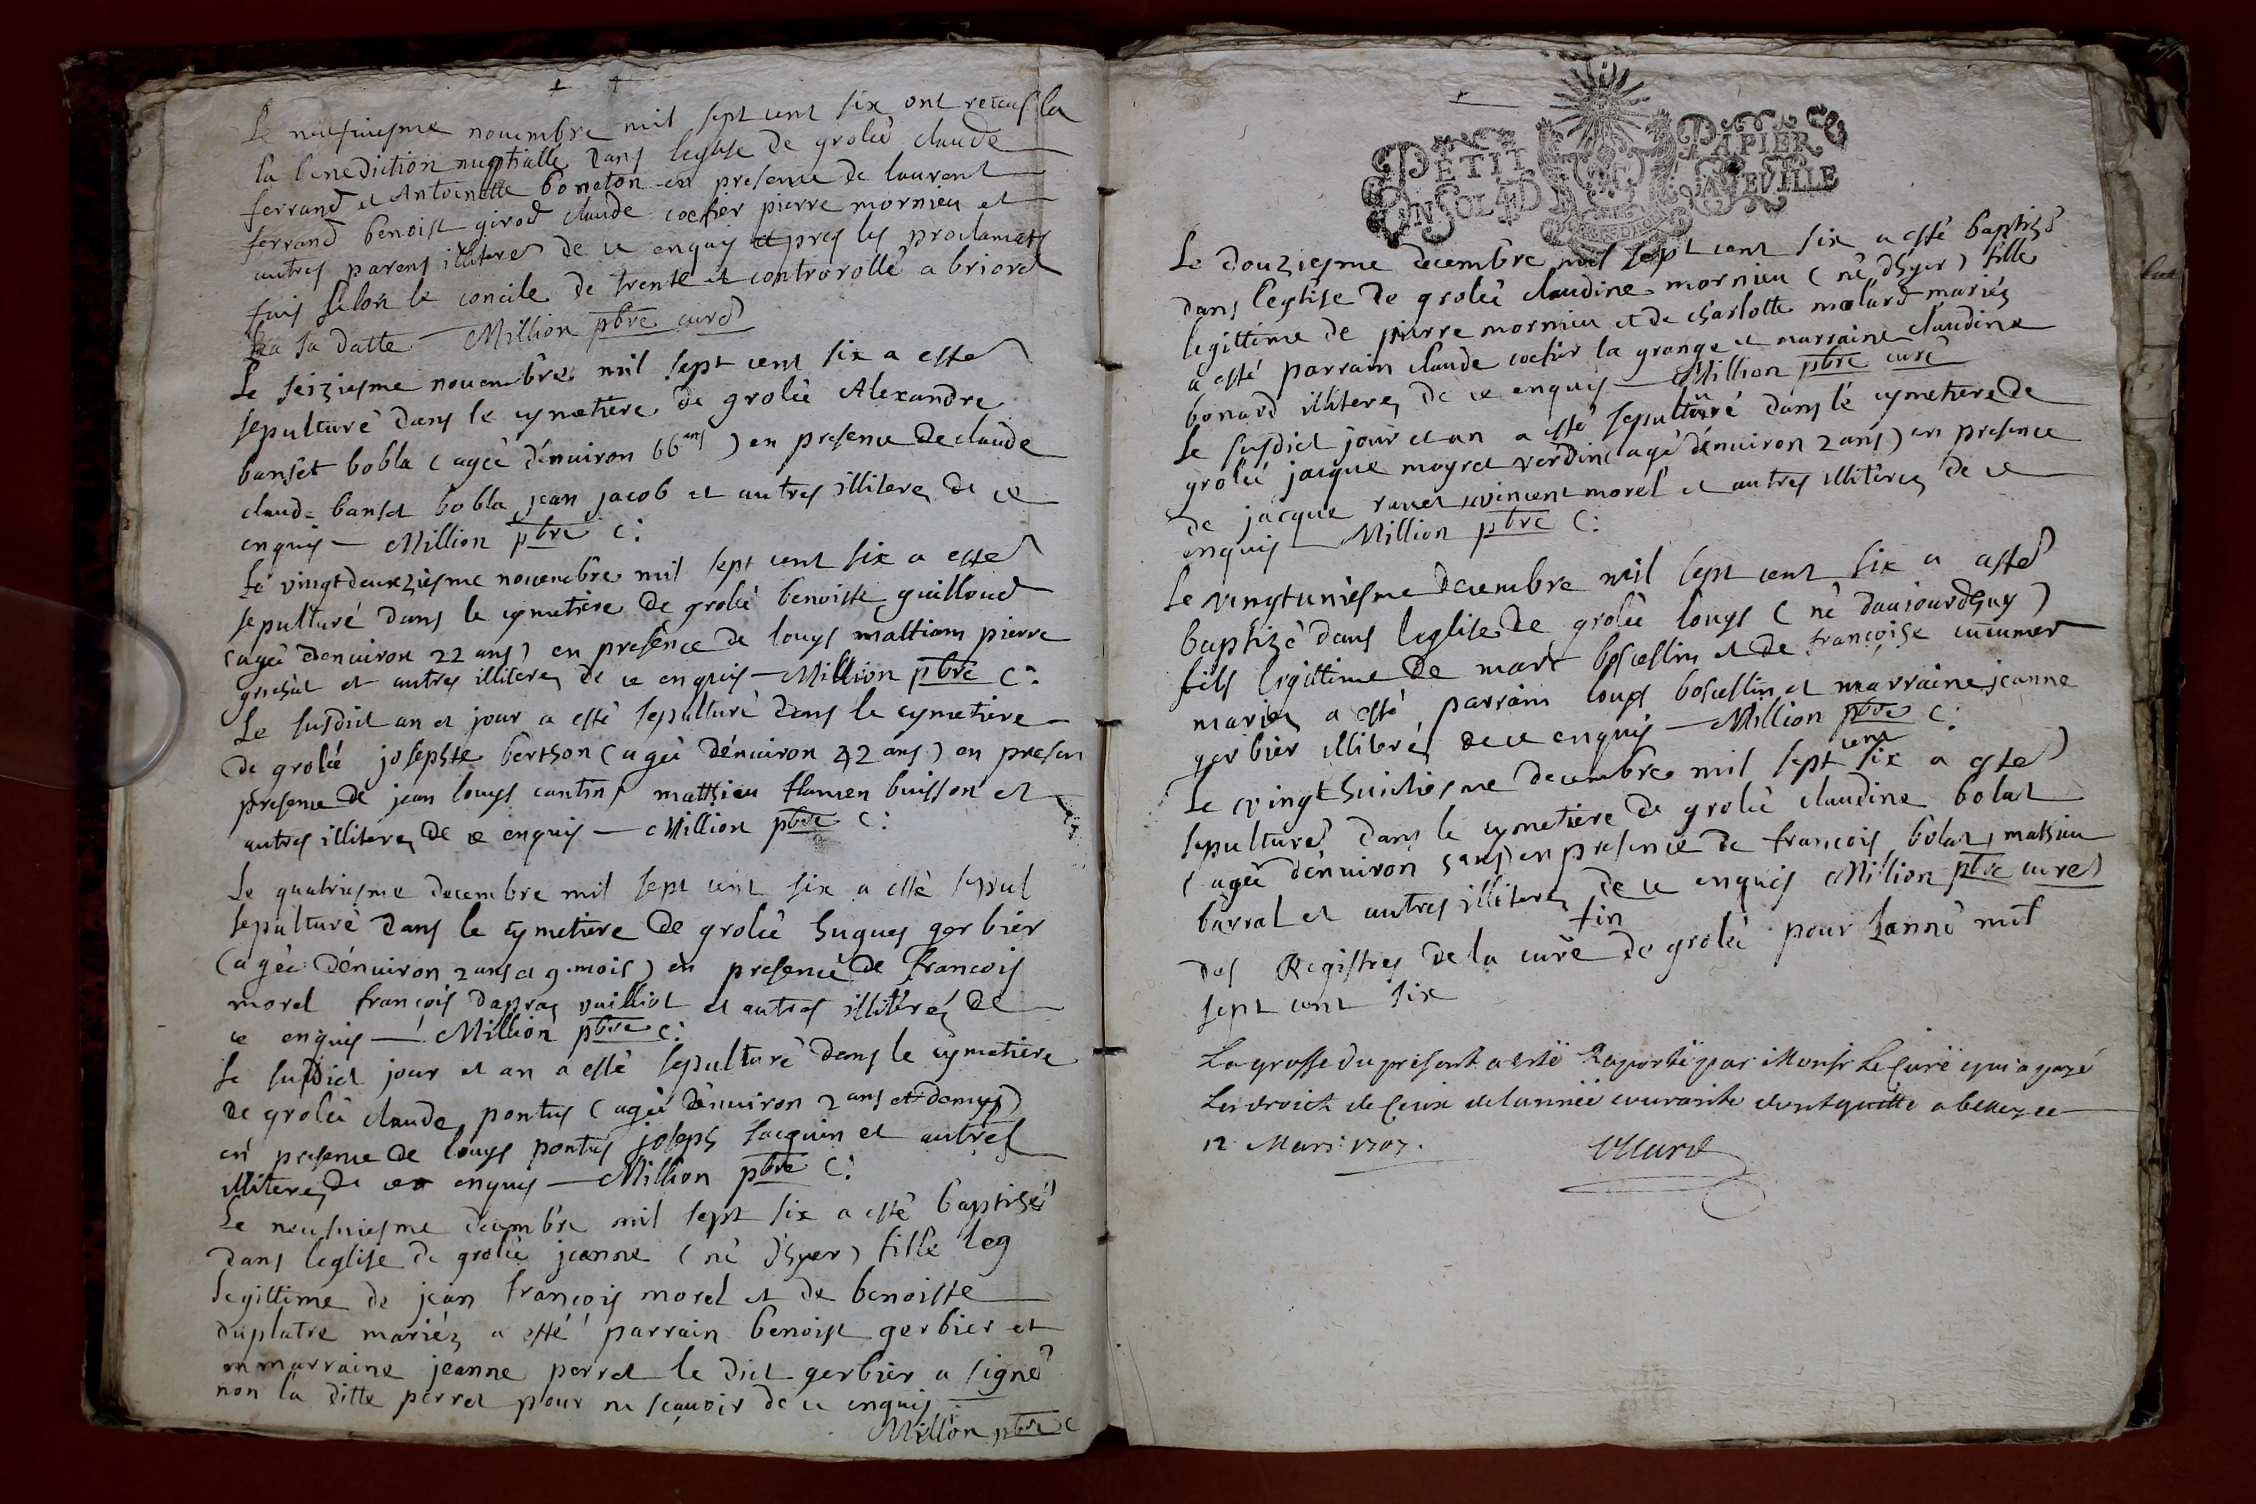 Le neufviesme novembre mil sept cent six ont receus la
la benediction nuptialle dans leglise de groleé claude
ferrand et Antoinette boneton en presence de laurent
ferrand benoist girod claude cochier pierre mornieu et
autres parens illiteres de ce enquis apres les proclamats
fais selon le concile de trente et controrollé a briord
sa datte — Million pbre curé
Le seiziesme novembre mil sept cent six a esté
sepulturé dans le cymetiere de groleé Alexandre
banset bobla (ageé dénuiron 66 ans) en presence de claude
claude banset bobla jean jacob et autres illiteres de ce
enquis — Million pbre C:
Le vingtdeuxziesme novembre mil sept cent six a esté
sepulturé dans le cymetiere de groleé benoiste guilloud
(ageé denuiron 22 ans) en presence de louys matthian pierre
et autres illiteres de ce enquis — Million pbre C:
Le susdict an et jour a esté sepulturé dans le cymetiere
de groleé josephte berthon (ageé dénuiron 42 ans) en presen
presence de jean louys cantin, matthieu buisson et
autres illiteres de ce enquis — Million pbre C:
Le quatriesme decembre mil sept cent six a esté sepul
sepulturé dans le cymetiere de groleé hugues gerbier
(ageé dénuiron 2 ans et 9 mois) en presence de francois
morel françois vuilliot et autres illiteréz de
ce enquis — Million pbre C:
Le susdict jour et an a esté sepulturé dans le cymetiere
de groleé claude pontus (ageé dénuiron 2 ans et demys)
en presence de louys pontus joseph jacquin et autres
illiteres de ce enquis — Million pbre C:
Le neufviesme decembre mil sept six a esté baptiseé
dans leglise de groleé jeanne (né dhyer) fille leg
legittime de jean françois morel et de benoiste
duplatre mariéz a esté parrain benoist gerbier et
marraine jeanne perret le dict gerbier a signé
non la ditte perret pour ne sçauoir de ce enquis
Million pbre C
PETIT PAPIER
UN SOL 4D LA FEVILLE
Le douziesme decembre mil sept cent six a esté baptizé
dans leglise de groleé claudine mornieu (né dhyer) fille
legittime de pierre mornieu et de charlotte molard mariéz
a esté parrain claude cochier la grange et marraine claudine
bonard illiteres de ce enquis — Million pbre curé
Le susdict jour et an a esté sepulturé dans le cymetiere de
groleé jacque moyret verdin (agé dénuiron 2 ans) en presence
de jacque ravet vincent morel et autres illiteres de ce
enquis — Million pbre C:
Le vingtuniesme decembre mil sept cent six a esté
baptizé dans leglise de groleé louys (né daujourdhuy)
fils legittime de marc et de françoise
mariéz a esté parrain louys et marraine jeanne
gerbier illiteréz de ce enquis — Million pbre C:
Le vingthuictiesme decembre mil sept cent six a esté
sepulturé dans le cymetiere de groleé claudine bolat
(ageé dénuiron 5 ans) en presence de francois bolat, mathieu
barral et autres illiteres de ce enquis Million pbre curé
fin
des Registres de la cure de groleé pour lanné mil
sept cent six
La grosse du present a esté Raportée par Monsr Le Curé qui a payé
Les droicts de Ceux de lannée courante dont quitte a belley ce
12 Mars 1707.